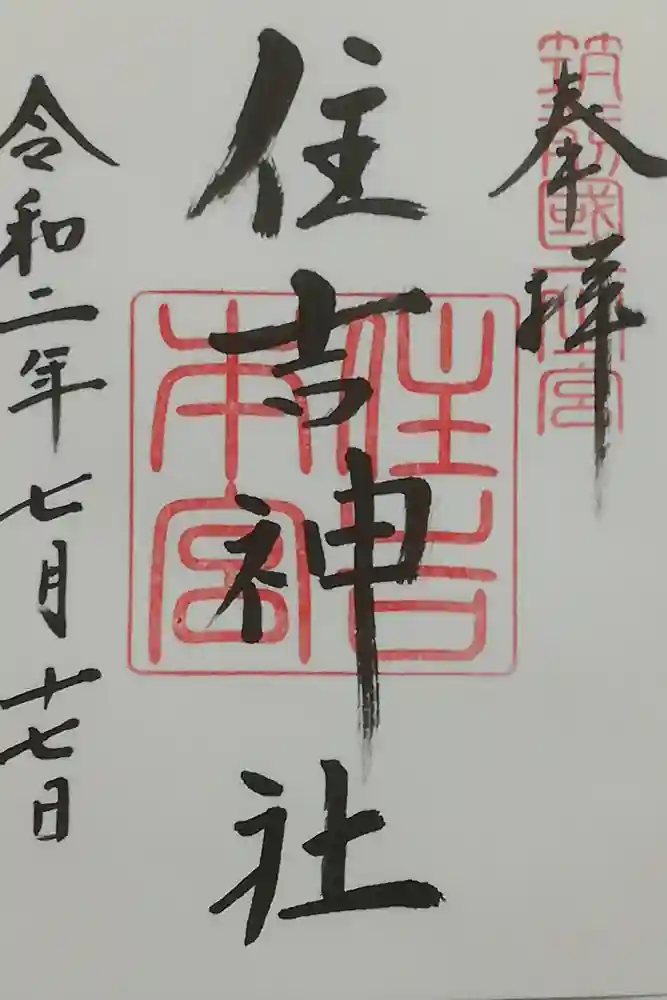 奉拝
筑前國 宮
住吉神社
住吉
本宮
令和二年七月十七日